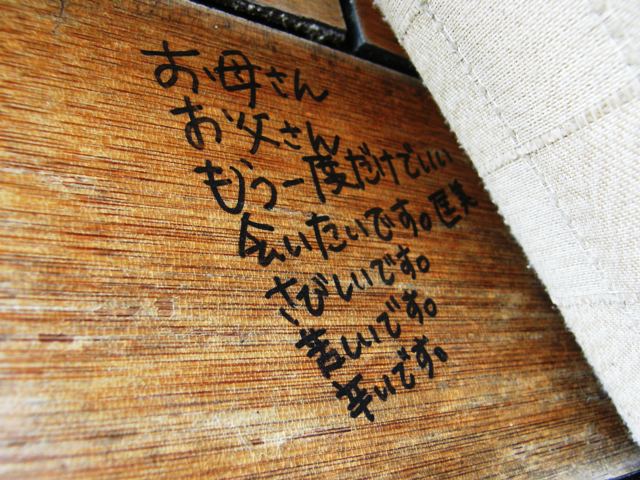 お母さん
お父さん
もう一度だけでいい
会いたいです。匡美
さびしいです。
苦しいです。
辛いです。